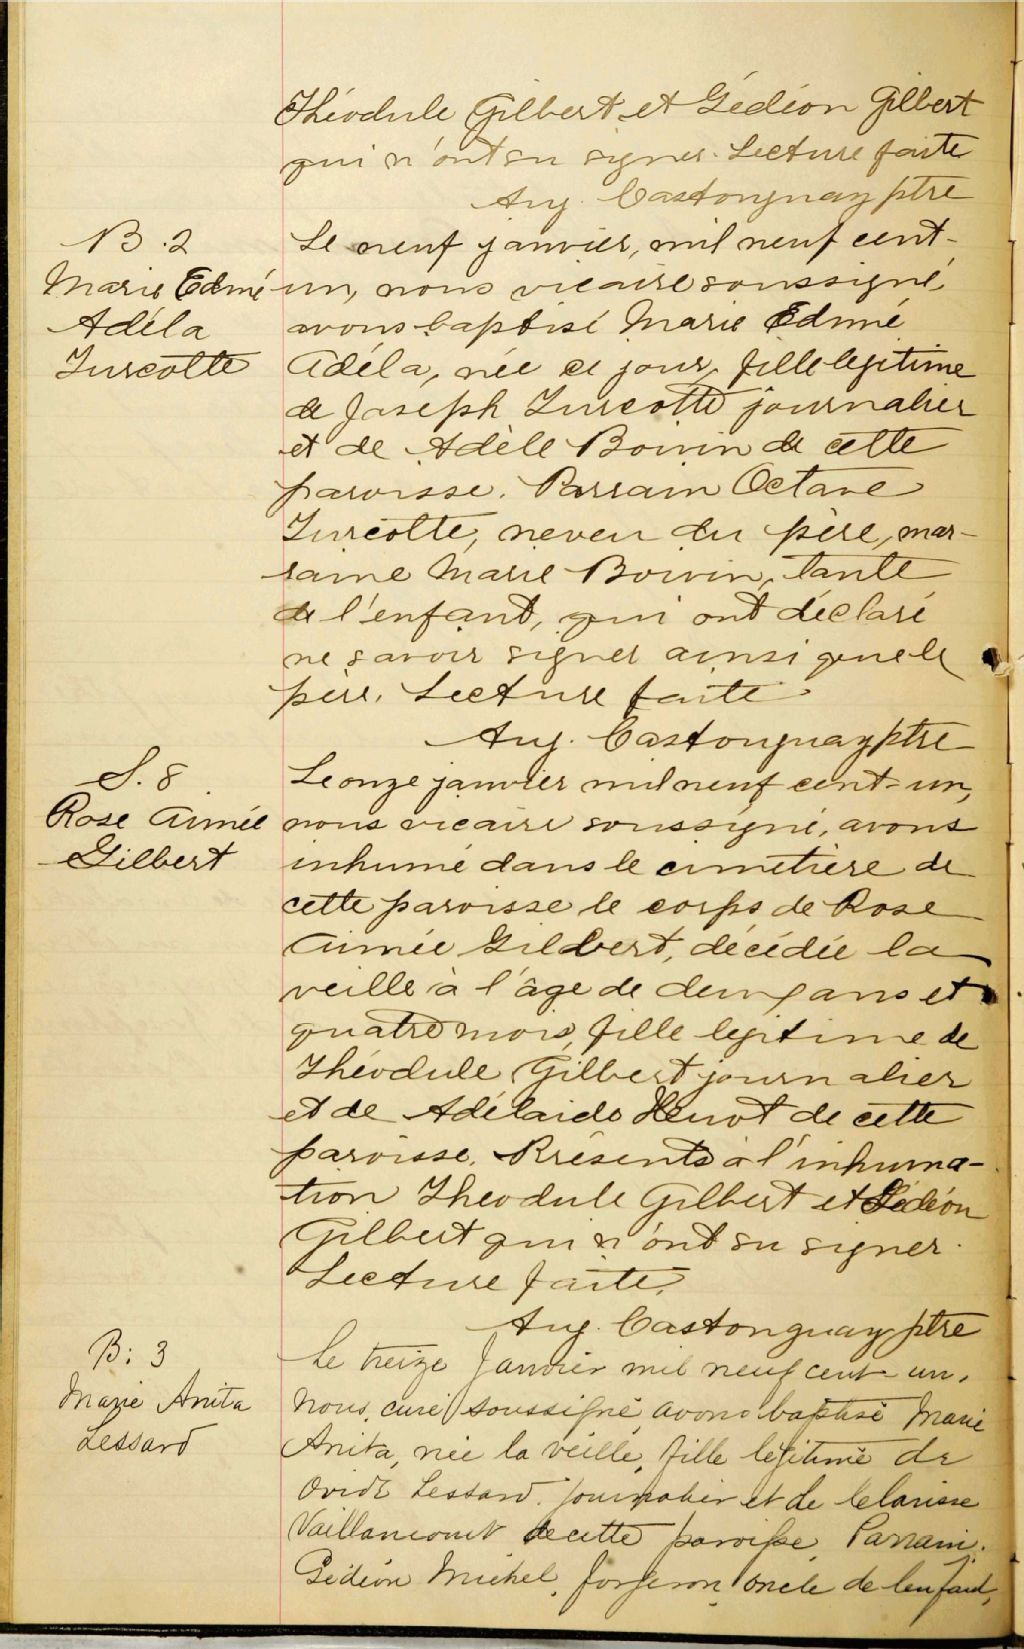 Théodule Gilbert et Gédéon Gilbert
qui n'ont su signer. Lecture faite
Aug. Castonguay ptre
B. 2
Marie Edmé
Adéla
Turcotte
Le neuf janvier, mil neuf cent-
un, nous vicaire soussigné,
avons baptisé Marie Edmé
Adéla, née ce jour, fille legitime
de Joseph Turcotte journalier
et de Adèle Boivin de cette
paroisse. Parrain Octave
Turcotte, neveu du père, mar-
raine Marie Boivin, tante
de l'enfant, qui ont déclaré
ne savoir signer ainsi que le
père. Lecture faite
Aug. Castonguay ptre
S. 8
Rose Aimée
Gilbert
Le onze janvier mil neuf cent-un,
nous vicaire soussigné, avons
inhumé dans le cimetière de
cette paroisse le corps de Rose
Aimée Gilbert, décédée la
veille à l'âge de deux ans et
quatre mois, fille legitime de
Théodule Gilbert journalier
et de Adélaide de cette
paroisse. Présents à l'inhuma-
tion Theodule Gilbert et Gédéon
Gilbert qui n'ont su signer.
Lecture faite.
Aug. Castonguay ptre
B: 3
Marie Anita
Lessard
Le treize Janvier mil neuf cent-un,
nous, curé soussigné avons baptisé Marie
Anita, née la veille, fille légitime de
Ovide Lessard journalier et de Clarisse
Vaillancourt de cette paroisse, Parrain:
Gédéon Michel, forgeron, oncle de l'enfant,